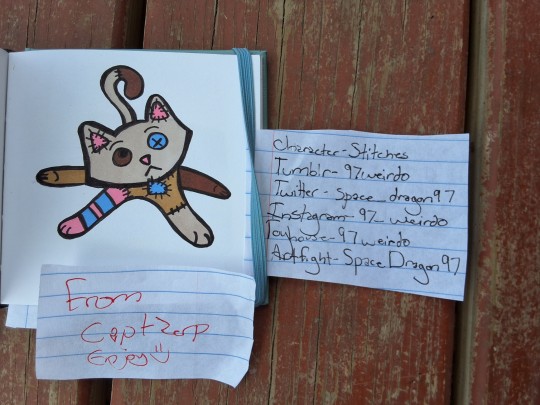 Character-Stitches
Tumblr-97weirdo
Twitter-Space_dragon97
Instagram-97_weirdo
Toyhouse-97weirdo
Artfight-SpaceDragon97
From
CaptZerp
Enjoy